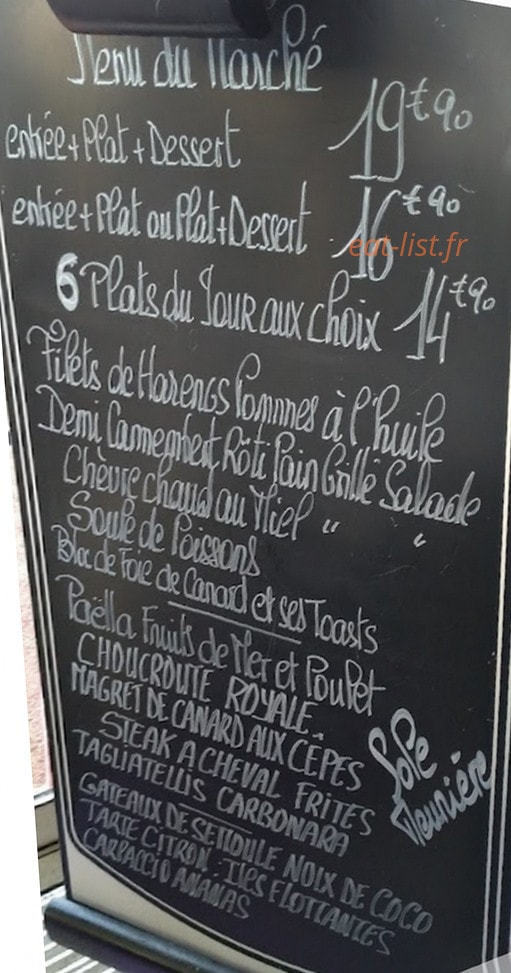 Menu du Marché
entrée + Plat + Dessert 19€90
entrée + Plat ou Plat + Dessert 16€90
eat-list.fr
6 Plats du Jour aux choix 14€90
Filets de Harengs Pommes à l'huile
Demi Camembert Rôti Pain Grillé Salade
Chèvre chaud au Miel " "
Soupe de Poissons
Bloc de Foie de Canard et ses Toasts
Paëlla Fruits de Mer et Poulet
CHOUCROUTE ROYALE.
MAGRET DE CANARD AUX CÈPES
Sole
Meunière
STEAK A CHEVAL FRITES
TAGLIATELLIS CARBONARA
GATEAUX DE SEMOULE NOIX DE COCO
TARTE CITRON. ILES FLOTTANTES
CARPACCIO ANANAS